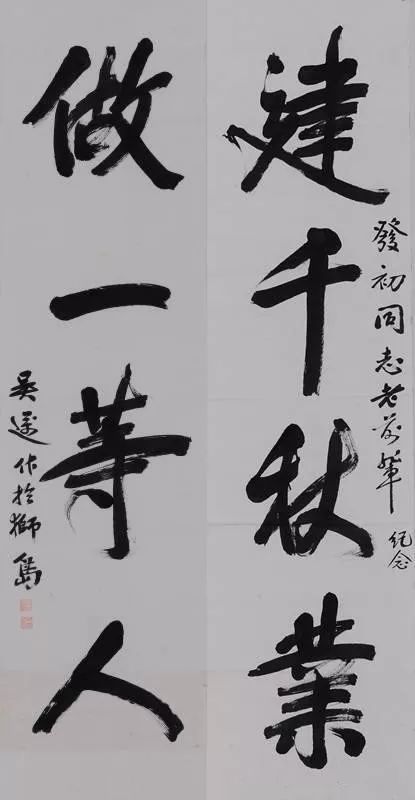 發初同志老前輩
紀念
建千秋業
做一等人
吳選作於獅島